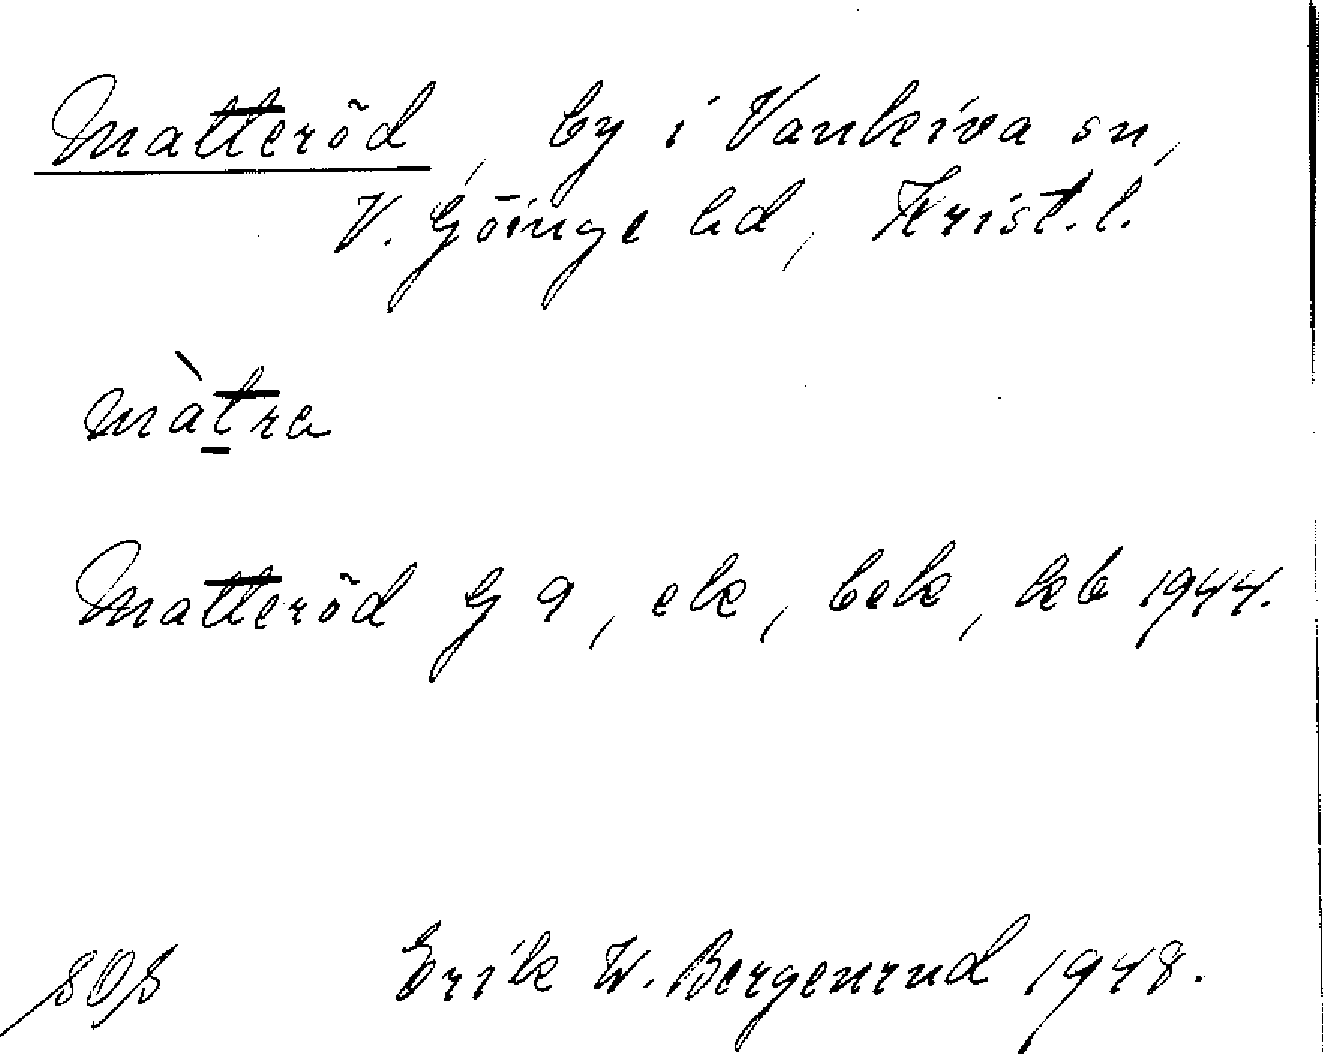 Matteröd, by i Vankiva sn,
V. Göinge hd, Krist. l.
màtra
Matteröd G 9, ek, bek, kb 1944.
SOS Erik W. Bergenrud 1948.